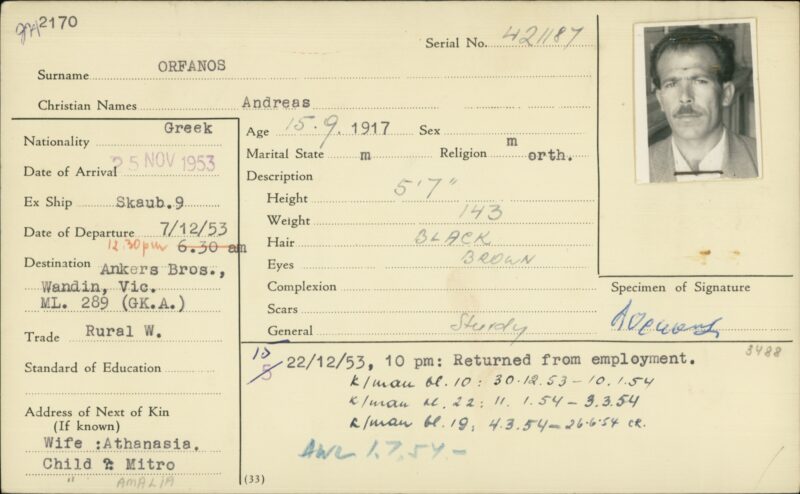 2170
Serial No. 421187
Surname ORFANOS
Christian Names Andreas
Nationality Greek
Date of Arrival 25 NOV 1953
Ex Ship Skaub.9
Date of Departure 7/12/53
12.30pm 6.30 am
Destination Ankers Bros.,
Wandin, Vic.
ML. 289 (GK.A.)
Trade Rural W.
Standard of Education
Address of Next of Kin
(If known)
Wife :Athanasia.
Child : Mitro
" AMALIA
Age 15.9.1917 Sex m
Marital State m Religion orth.
Description
Height 5'7"
Weight 143
Hair BLACK
Eyes BROWN
Complexion
Scars
General Sturdy
Specimen of Signature
3488
22/12/53, 10 pm: Returned from employment.
K/man bl. 10: 30.12.53 – 10.1.54
K/man bl. 22: 11.1.54 – 3.3.54
K/man bl. 19: 4.3.54 – 26.6.54 CR.
AWL 1.7.54 –
(33)